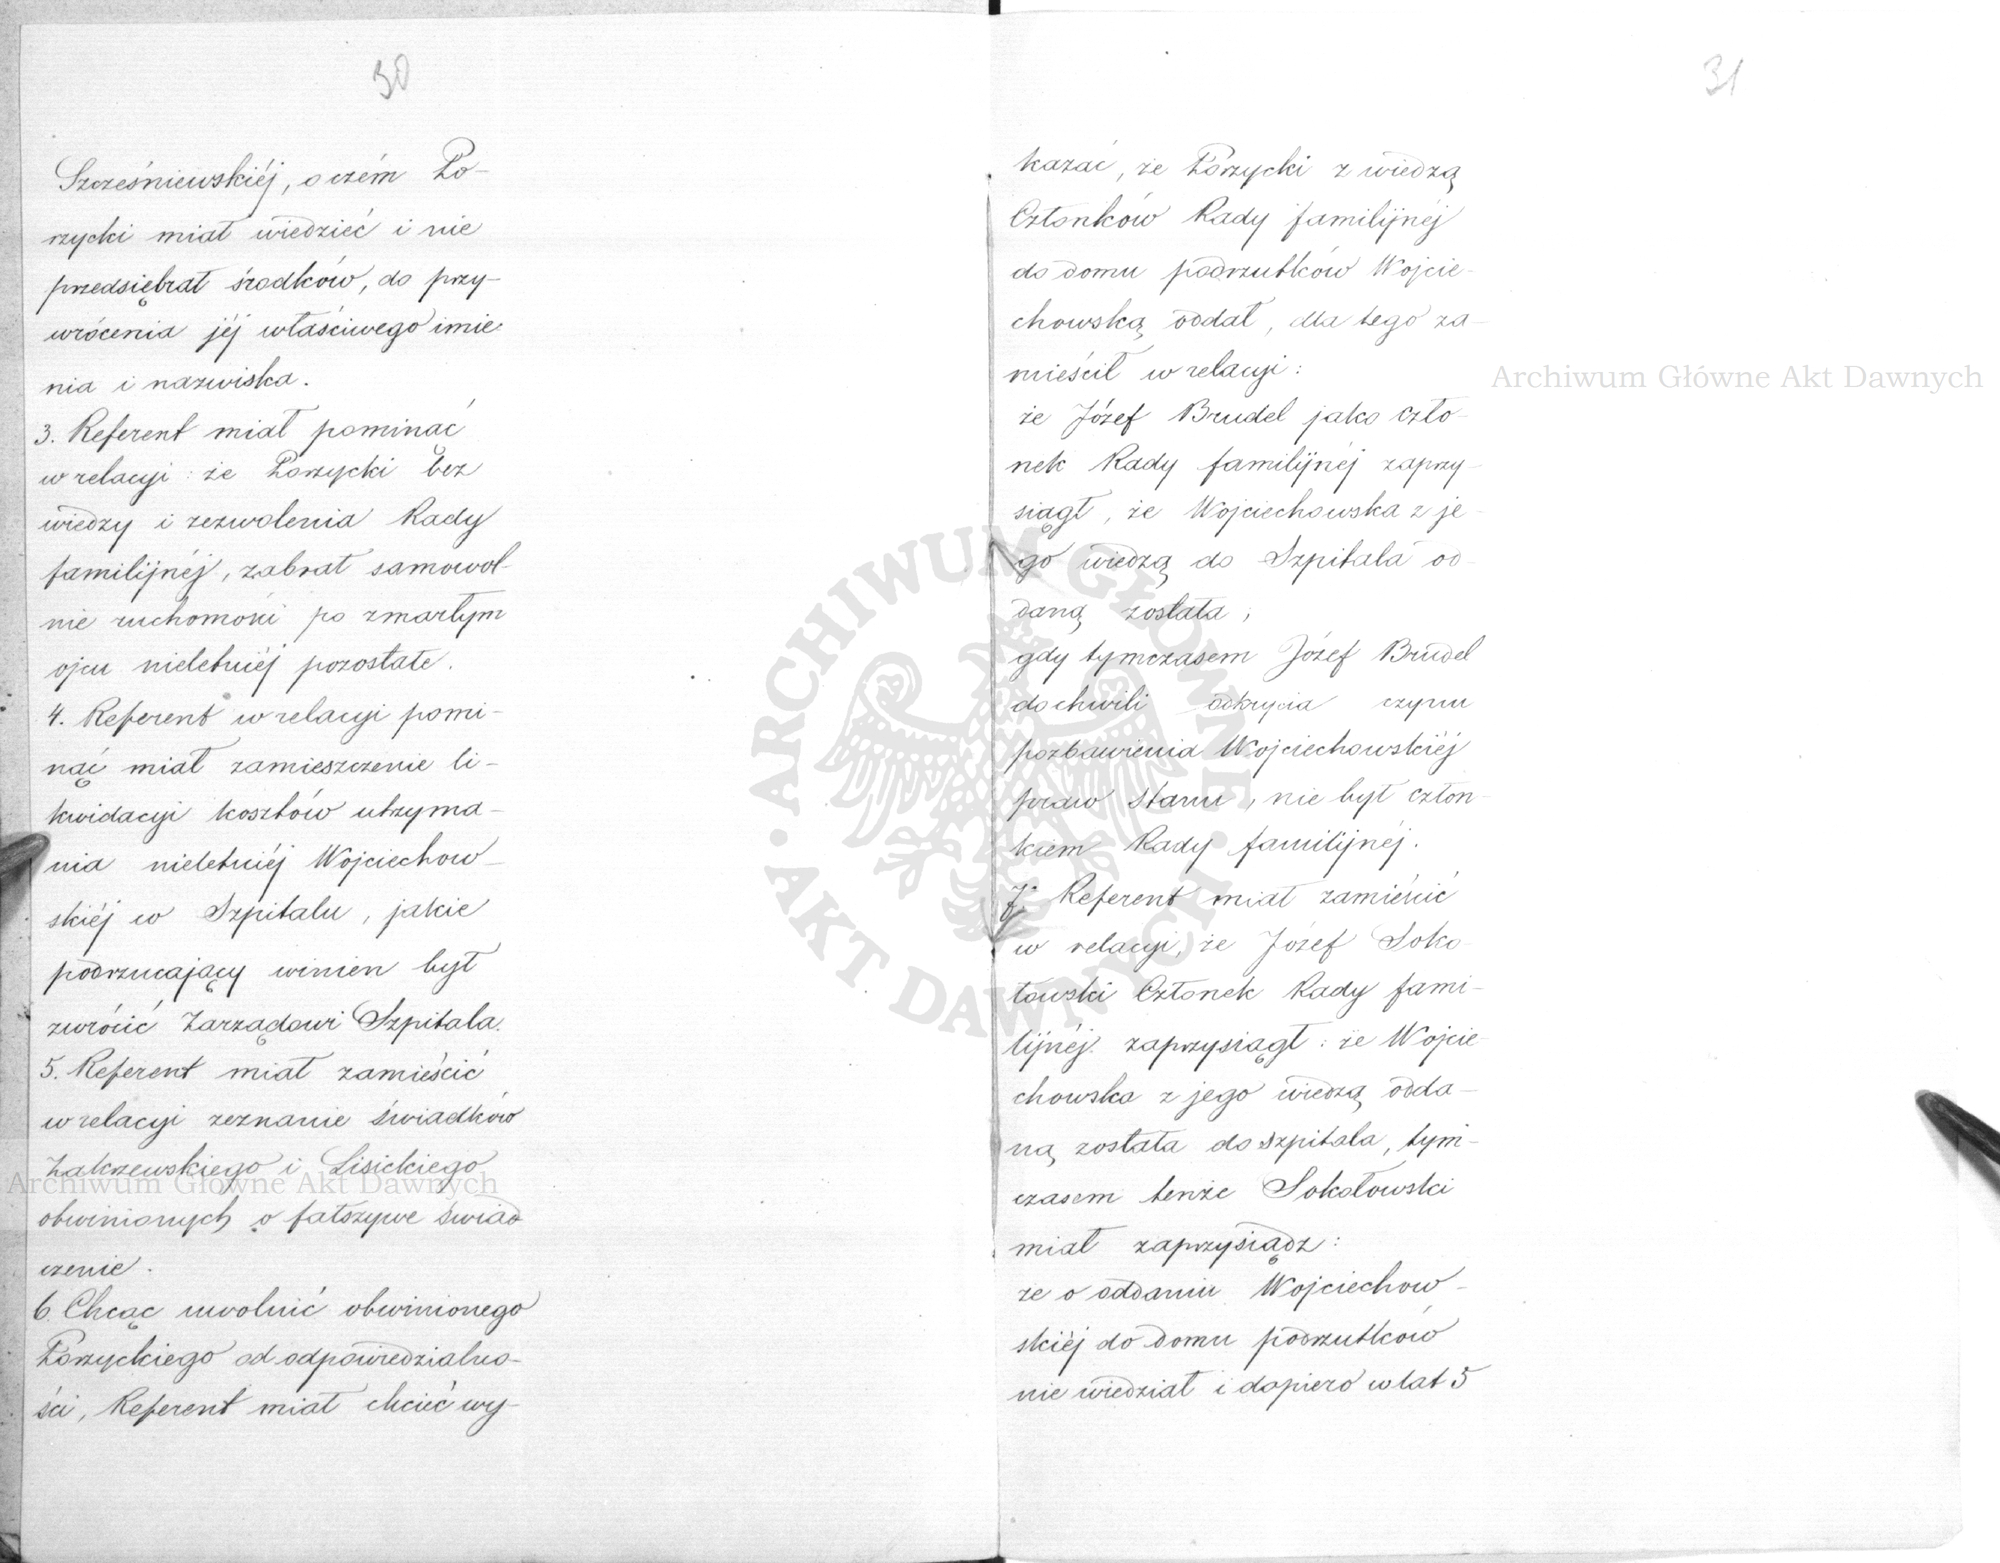 30
Szcześniewskiéj, o czém Po-
rzycki miał wiedzieć i nie
przedsiębrał środków, do przy-
wrócenia jéj właściwego imie
nia i nazwiska.
3. Referent miał pominąć
w relacyi: że Porzycki bez
wiedzy i zezwolenia Rady
familijnéj, zabrał samowol-
nie ruchomości po zmarłym
ojcu nieletniéj pozostałe.
4. Referent w relacyi pomi-
nąć miał zamieszczenie li-
kwidacyi kosztów utrzyma-
nia nieletniéj Wojciechow-
skiéj w Szpitalu, jakie
podrzucający winien był
zwrócić Zarządowi Szpitala.
5. Referent miał zamieścić
w relacyi zeznanie świadków
Zakrzewskiego i Lisickiego
obwinionych o fałszywe świad
czenie.
6. Chcąc uwolnić obwinionego
Porzyckiego od odpowiedzialno-
ści, Referent miał chcieć wy-
31
kazać, że Porzycki z wiedzą
Członków Rady familijnéj
do domu podrzutków Wojcie-
chowską oddał, dla tego za-
mieścił w relacyi:
że Józef Brudel jako czło-
nek Rady familijnéj zaprzy-
siągł, że Wojciechowska z je-
go wiedzą do Szpitala od-
daną została,
gdy tymczasem Józef Brudel
do chwili odkrycia czynu
pozbawienia Wojciechowskiéj
praw stanu, nie był człon-
kiem Rady familijnéj.
7. Referent miał zamieścić
w relacyi, że Józef Soko-
łowski Członek Rady fami-
lijnéj zaprzysiągł: że Wojcie-
chowska z jego wiedzą odda-
ną została do szpitala, tym-
czasem tenże Sokołowski
miał zaprzysiądz:
że o oddaniu Wojciechow-
skiéj do domu podrzutków
nie wiedział i dopiero w lat 5
Archiwum Główne Akt Dawnych
Archiwum Główne Akt Dawnych
ARCHIWUM GŁÓWNE · AKT DAWNYCH ·